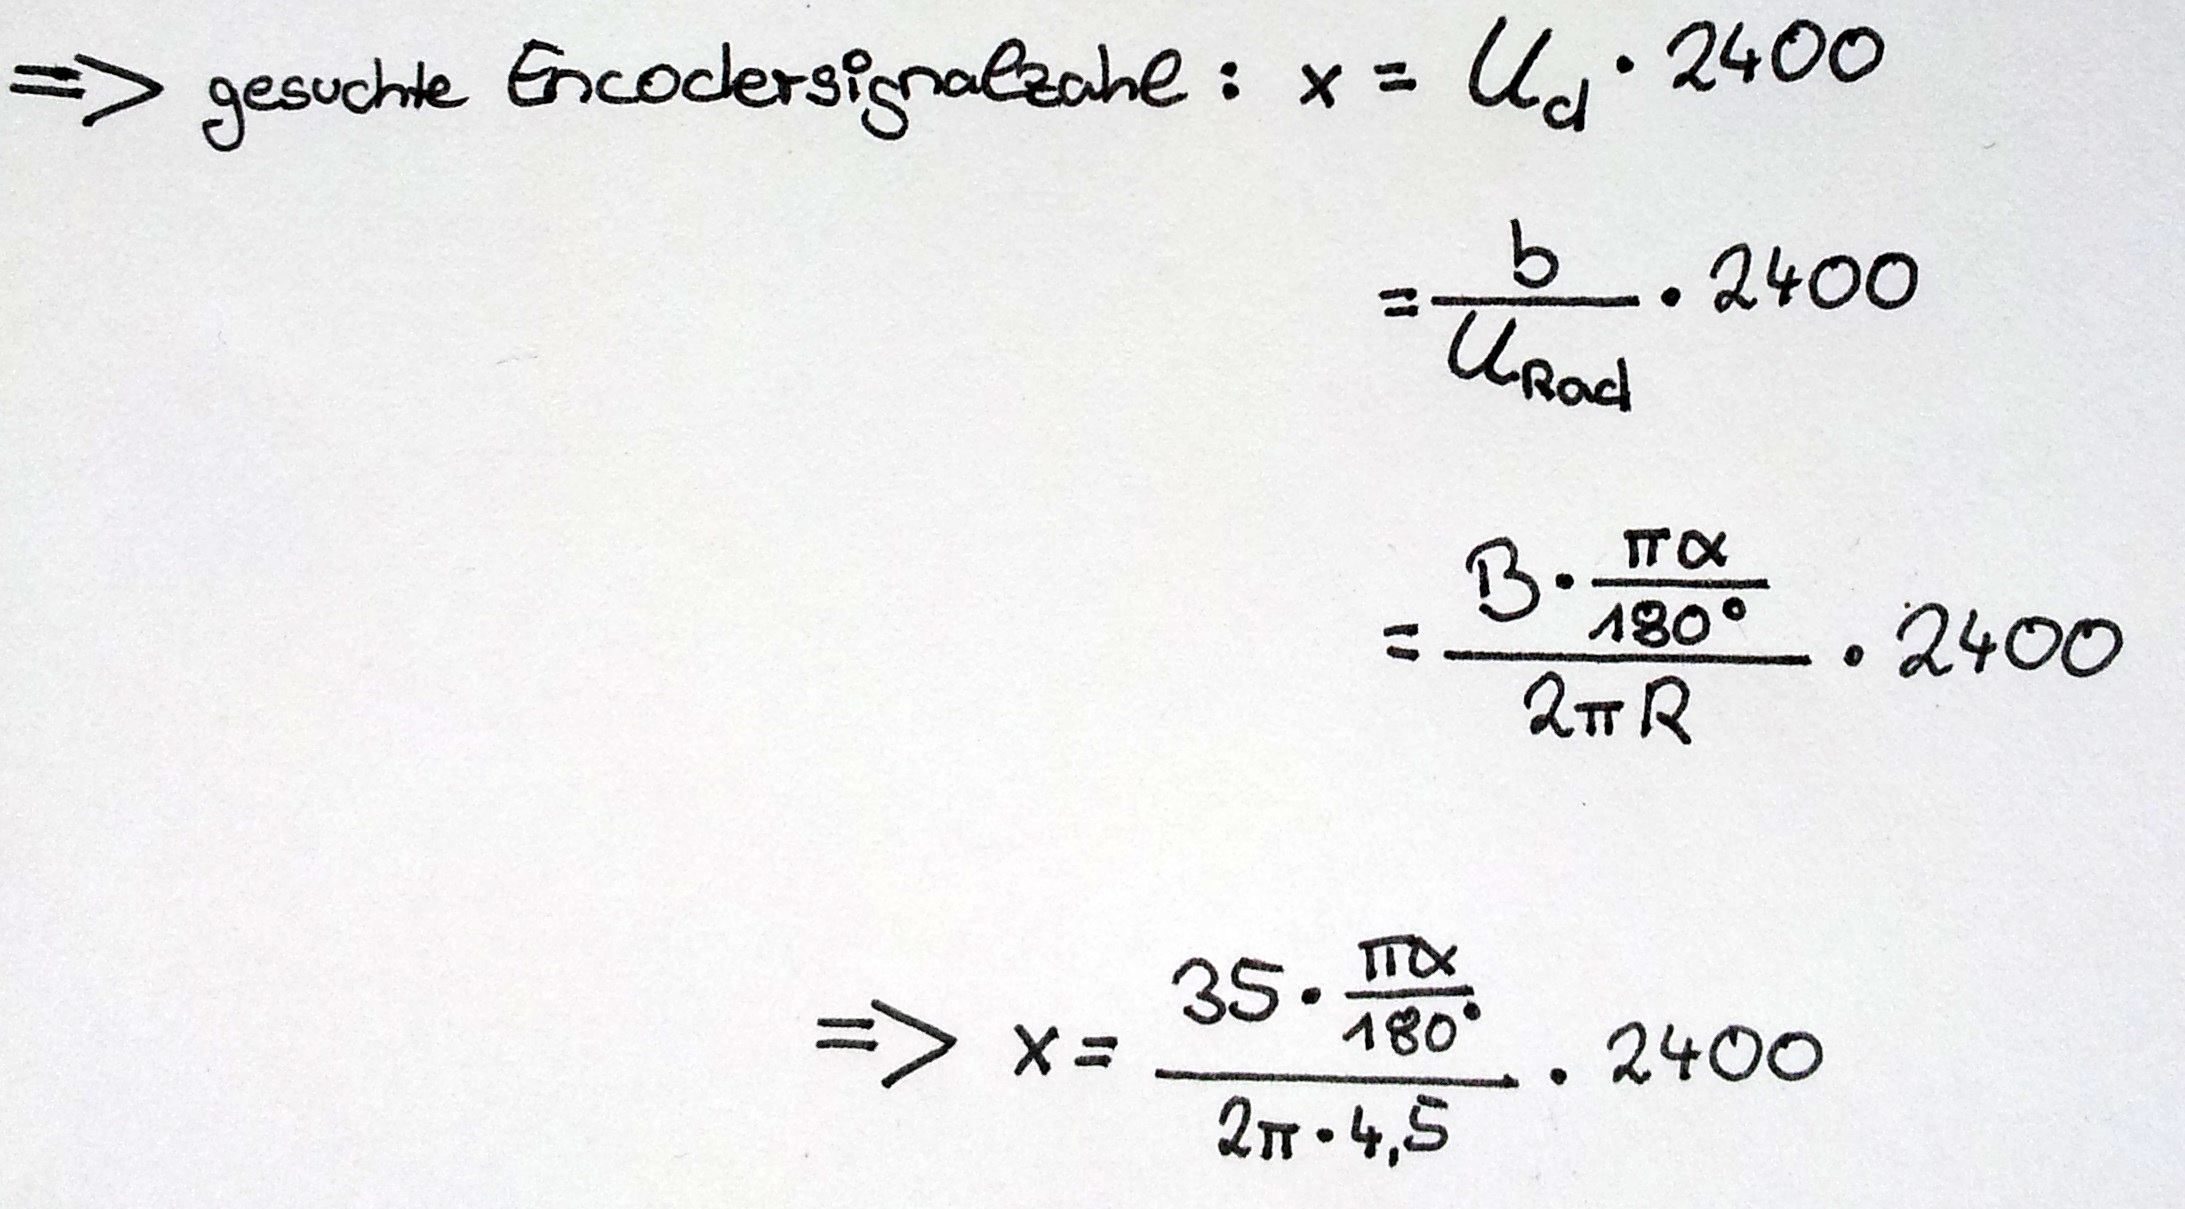 => gesuchte Encodersignalzahl : x = U_d · 2400
= \frac{b}{U_{Rad}} · 2400
= \frac{B · \frac{πα}{180°}}{2πR} · 2400
=> x = \frac{35 · \frac{πα}{180°}}{2π · 4,5} · 2400